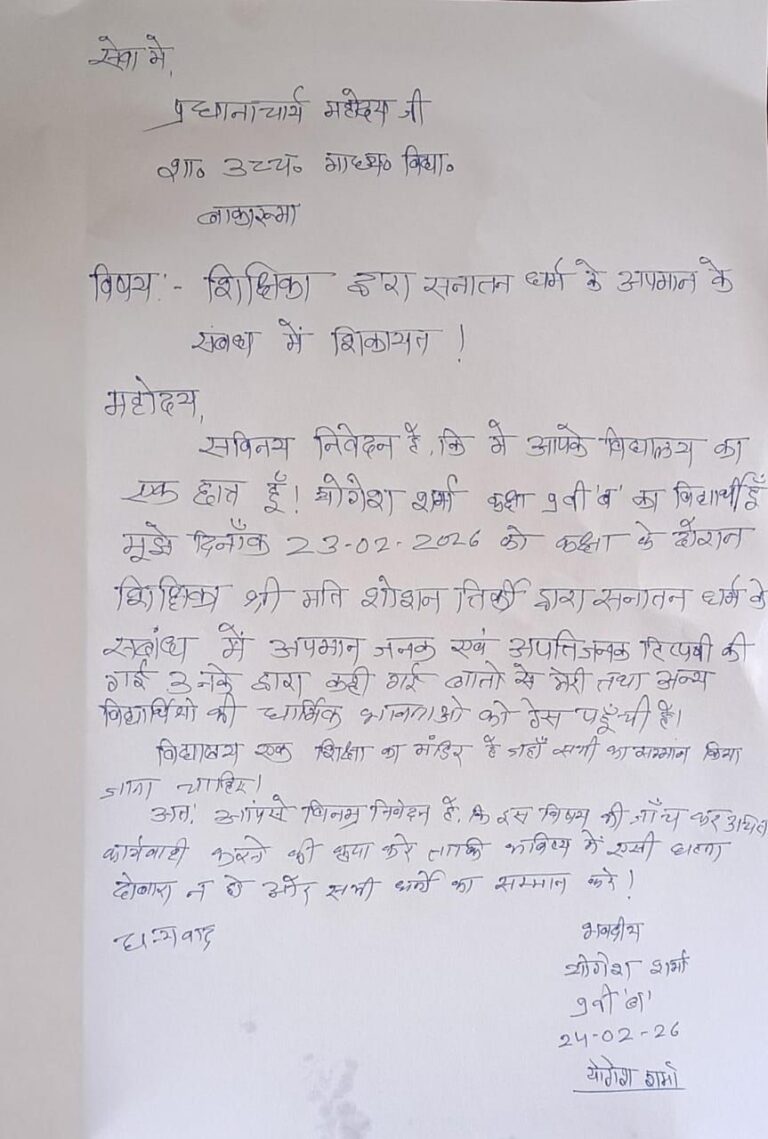 सेवा मे,
प्रधानाचार्य महोदय जी
शा० उच्च० माध्य० विद्या०
बाकारूमा
विषय:- शिक्षिका द्वारा सनातन धर्म के अपमान के
संबंध में शिकायत !
महोदय,
सविनय निवेदन है, कि मे आपके विद्यालय का
एक छात्र हूँ! योगेश शर्मा कक्षा 9वी 'ब' का विद्यार्थी हूँ
मूझे दिनाँक 23-02-2026 को कक्षा के दौरान
शिक्षिका श्री मति शोशन तिर्की द्वारा सनातन धर्म के
सबांध में अपमान जनक एवं अपत्तिजनक टिप्पणी की
गई उनके द्वारा कही गई बातो से मेरी तथा अन्य
विद्यार्थियो की धार्मिक भावनाओ को ठेस पहूँची है।
विद्यालय एक शिक्षा का मंदिर है जहाँ सभी का सम्मान किया
जाना चाहिए।
अतः आपसे विनम्र निवेदन है, कि इस विषय की जाँच कर उचित
कार्यवाही करने की कृपा करे ताकि भविष्य मे एसी घटना
दोबारा न हो और सभी धर्मो का सम्मान करे!
धन्यवाद
भवदीय
योगेश शर्मा
9वी 'ब'
24-02-26
योगेश शर्मा